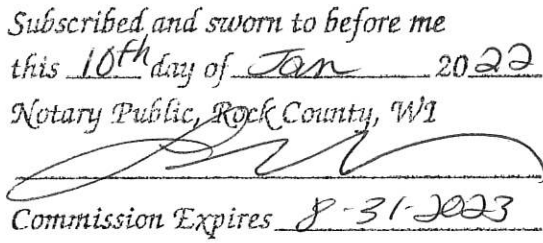 Subscribed and sworn to before me
this 10th day of Jan 2022
Notary Public, Rock County, WI
Commission Expires 8-31-2023